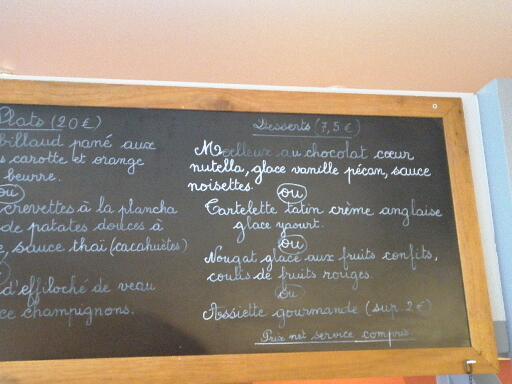 Plats (20€)
billaud pané aux
s carotte et orange
beurre.
ou
crevettes à la plancha
de patates douces à
, sauce thaï (cacahuètes)
d'effiloché de veau
ce champignons.
Desserts (7,5€)
Moelleux au chocolat cœur
nutella, glace vanille pécan, sauce
noisettes.
ou
Tartelette tatin crème anglaise
glace yaourt.
ou
Nougat glacé aux fruits confits,
coulis de fruits rouges.
ou
Assiette gourmande (sup. 2€)
Prix net service compris.